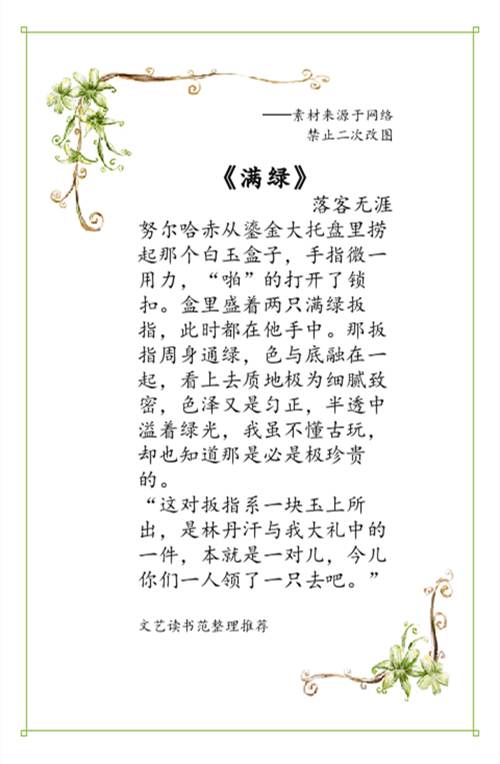 ——素材来源于网络
禁止二次改图
《满绿》
落客无涯
努尔哈赤从鎏金大托盘里捞
起那个白玉盒子，手指微一
用力，“啪”的打开了锁
扣。盒里盛着两只满绿扳
指，此时都在他手中。那扳
指周身通绿，色与底融在一
起，看上去质地极为细腻致
密，色泽又是匀正，半透中
溢着绿光，我虽不懂古玩，
却也知道那是必是极珍贵
的。
“这对扳指系一块玉上所
出，是林丹汗与我大礼中的
一件，本就是一对儿，今儿
你们一人领了一只去吧。”
文艺读书范整理推荐